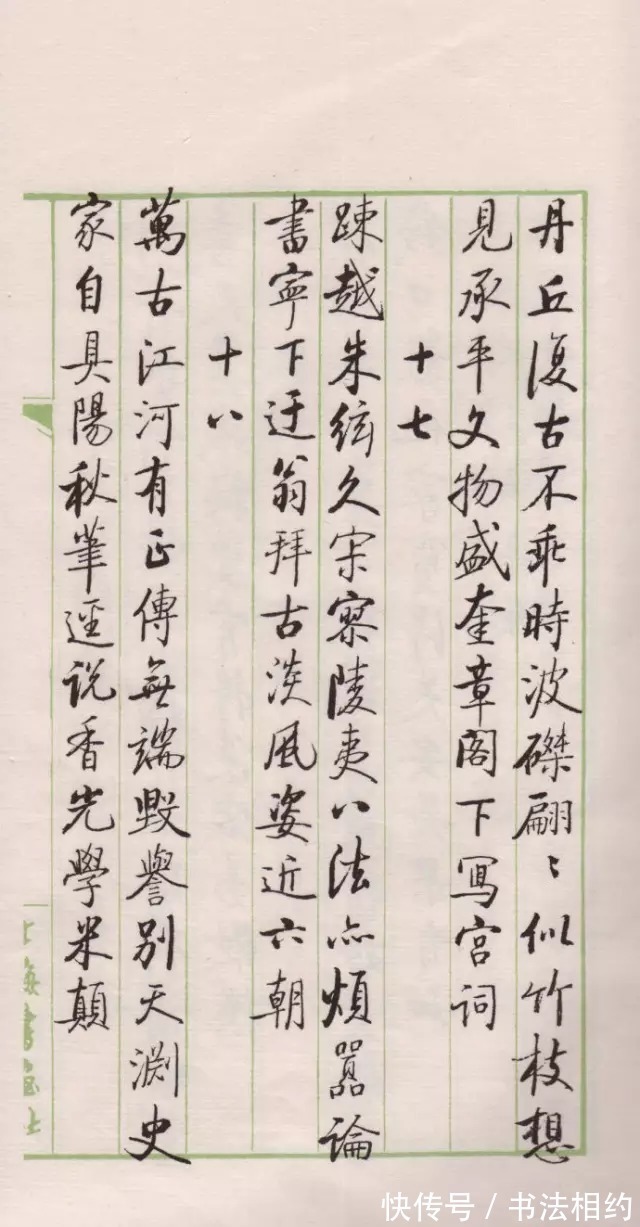 丹丘復古不乖時波磔翩〻似竹枝想
見承平文物盛奎章閣下寫宮詞
十七
疎越朱絃久宗寥陵夷八法亦煩囂論
書寧下迂翁拜古淡風姿近六朝
十八
萬古江河有正傳無端毀譽別天淵史
家自具陽秋筆逕說香光學米顛
上海書畫社
快传号/书法相约